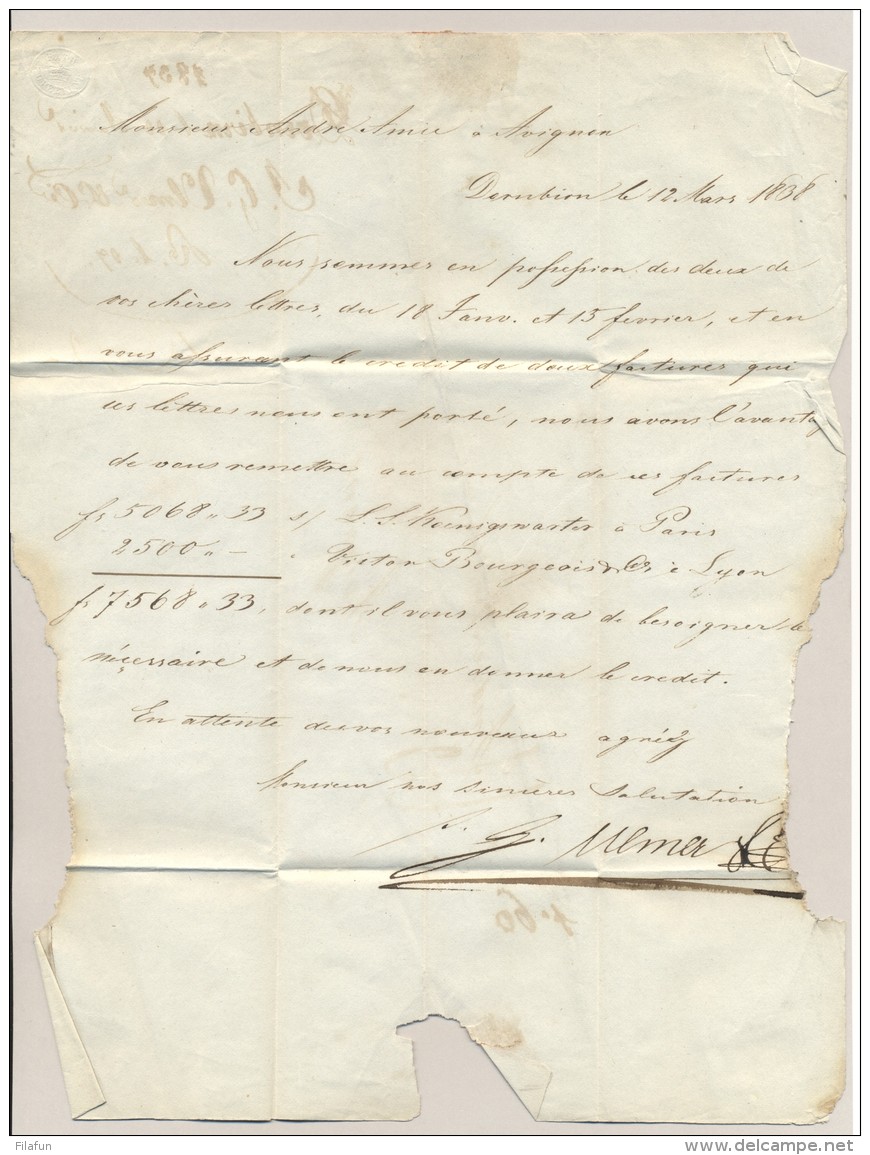 Monsieur Andre Amie à Avignon
Dernbion le 12 Mars 1838
Nous sommes en possession des deux de
vos chères lettres, du 18 Janv. et 15 fevrier, et en
vous assurant le credit de deux factures qui
ces lettres nous ont porté, nous avons l'avantag
de vous remettre au compte de ces factures
fs 5068 „ 33 s/ L. S. Koenigswarter à Paris
2500 „ - „ Victor Bourgeois & Co à Lyon
fs 7568 „ 33, dont il vous plaira de besoigner le
nécessaire et de nous en donner le credit.
En attente de vos nouveaux agréez
Monsieur nos sincères Salutation
G. Ulmer & C
4.60
Filafun
www.delcampe.net